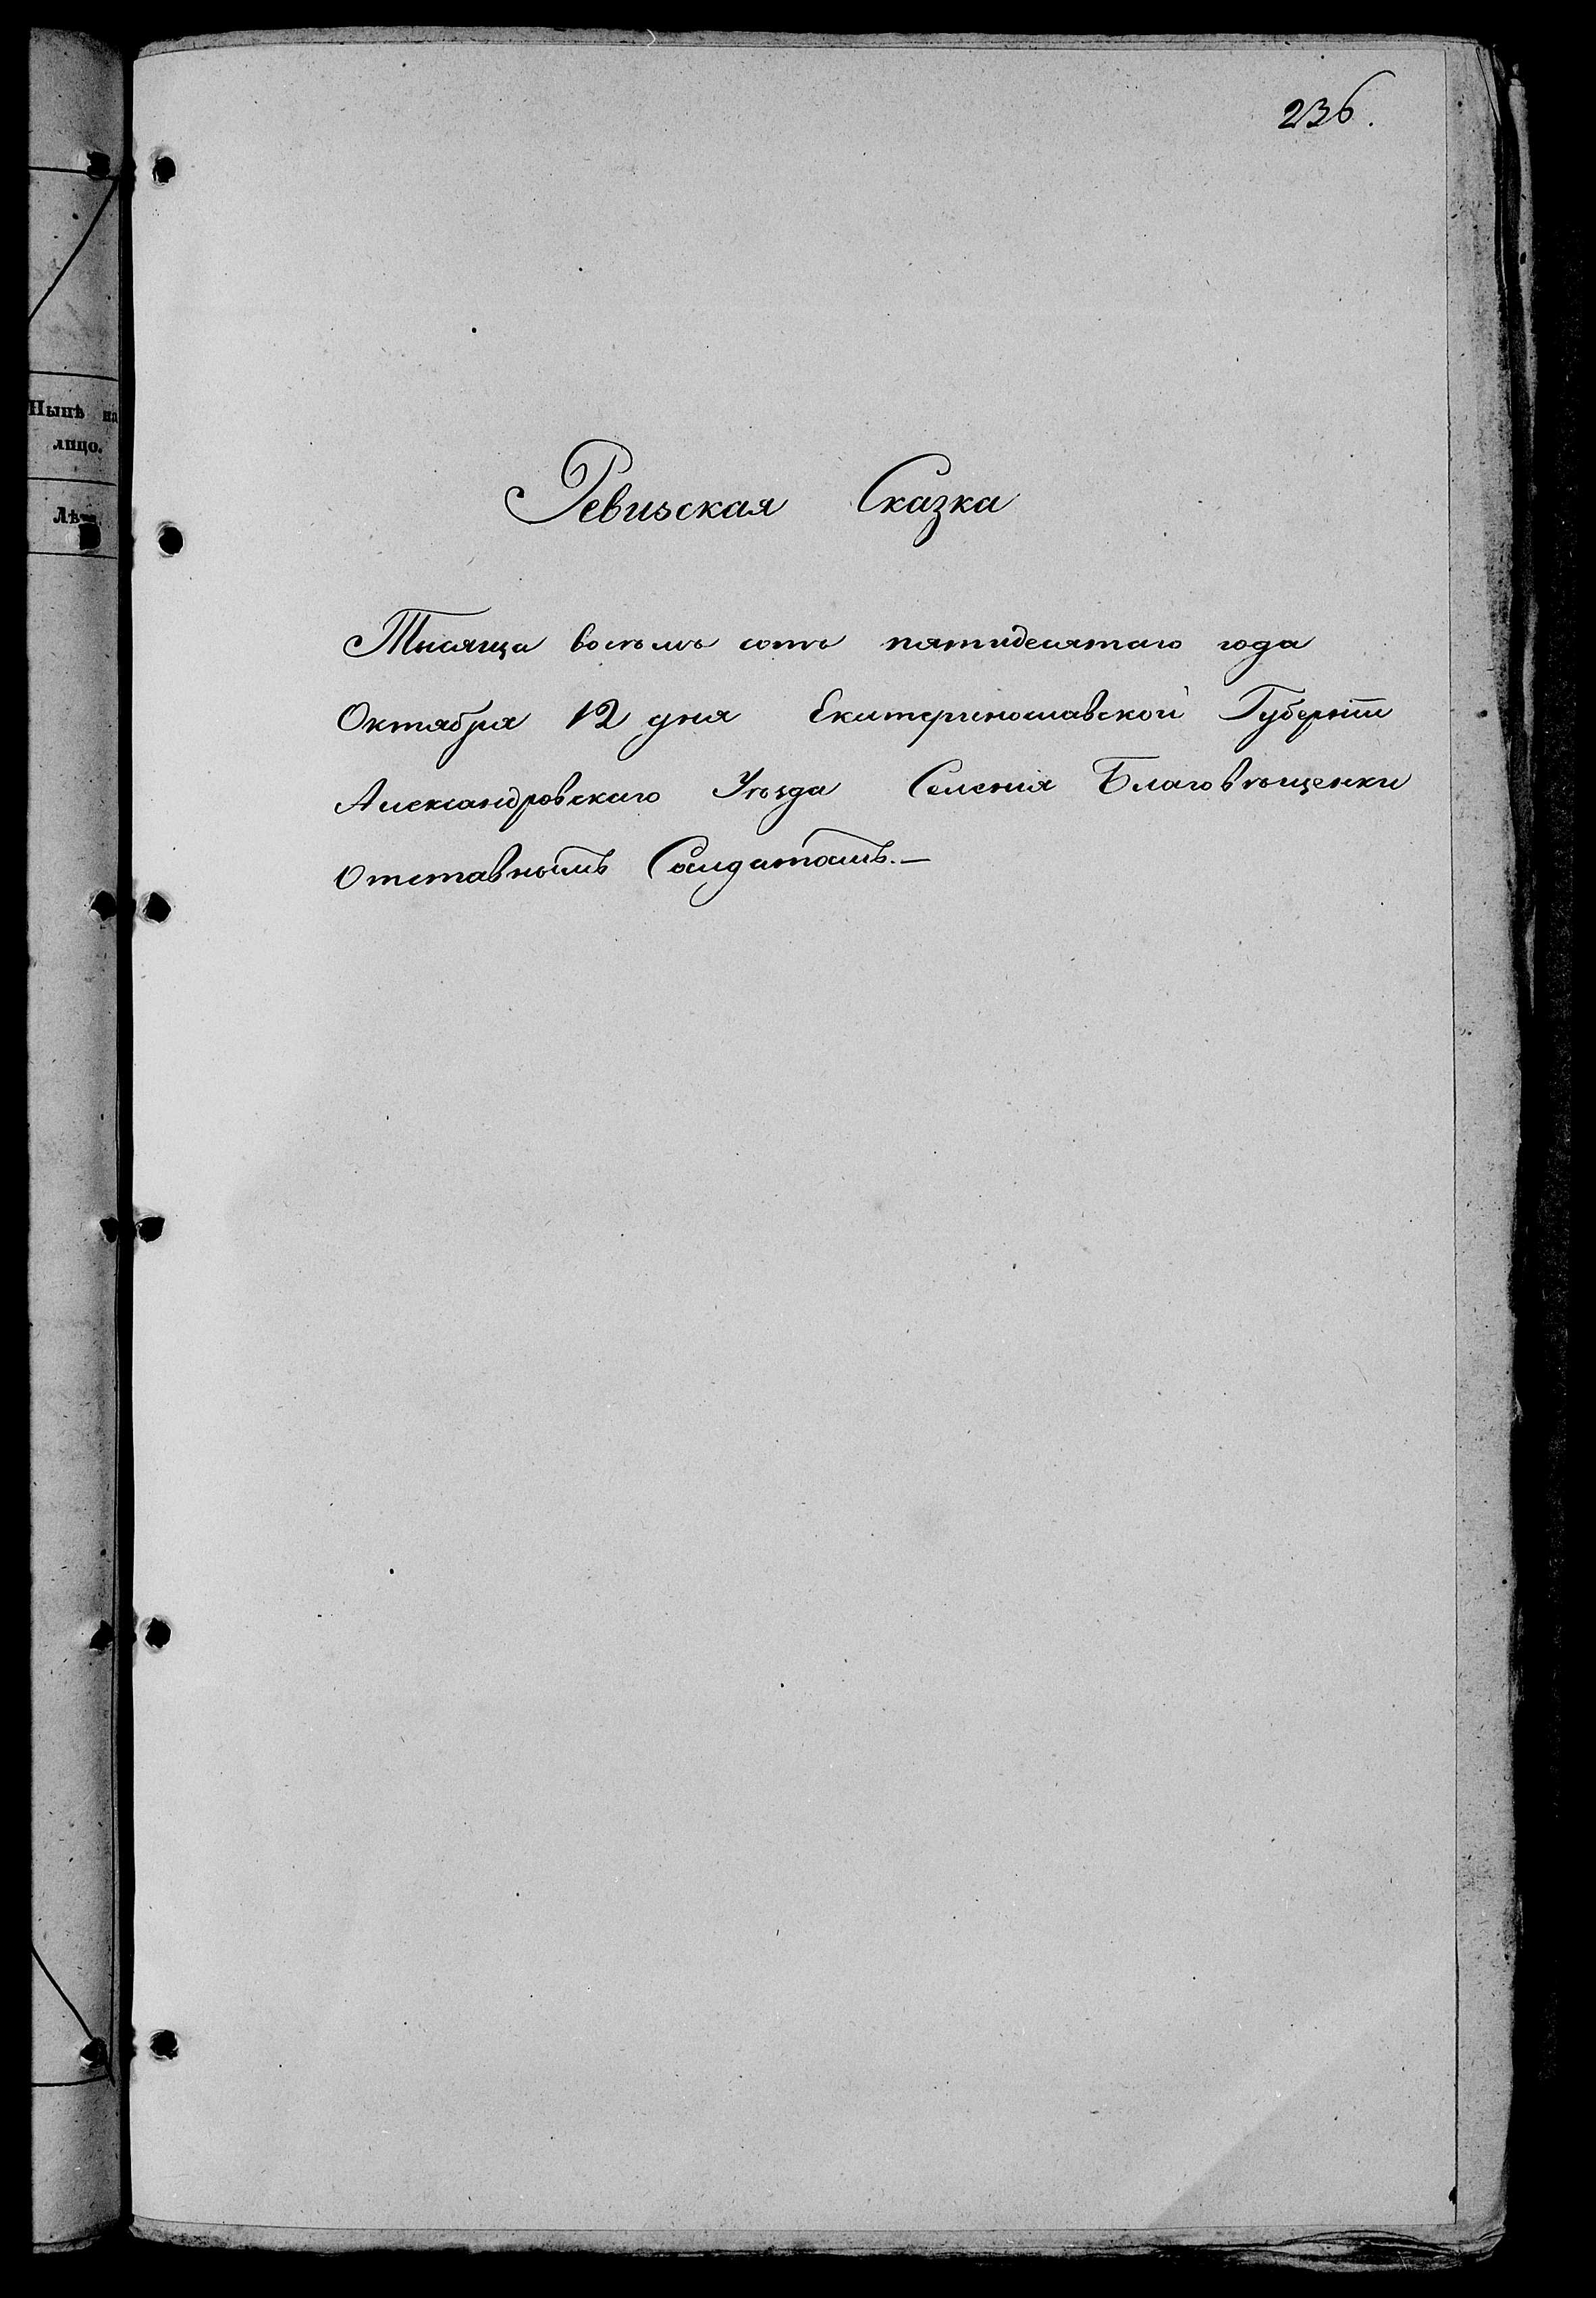 236.
Нынѣ на
лицо.
Лѣта.
Ревизская Сказка
Тысяща восьмъ сотъ пятидесятаго года
Октября 12 дня Екатеринославской Губернiи
Александровскаго Уѣзда Селенiя Благовѣщенки
Отставнымъ Солдатамъ.—